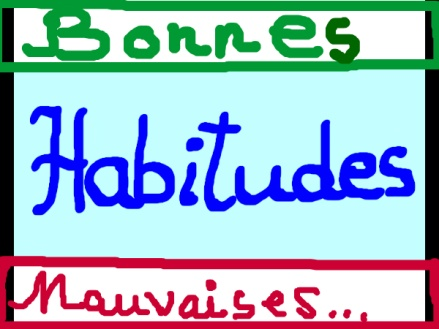 Bonnes
Habitudes
Mauvaises...